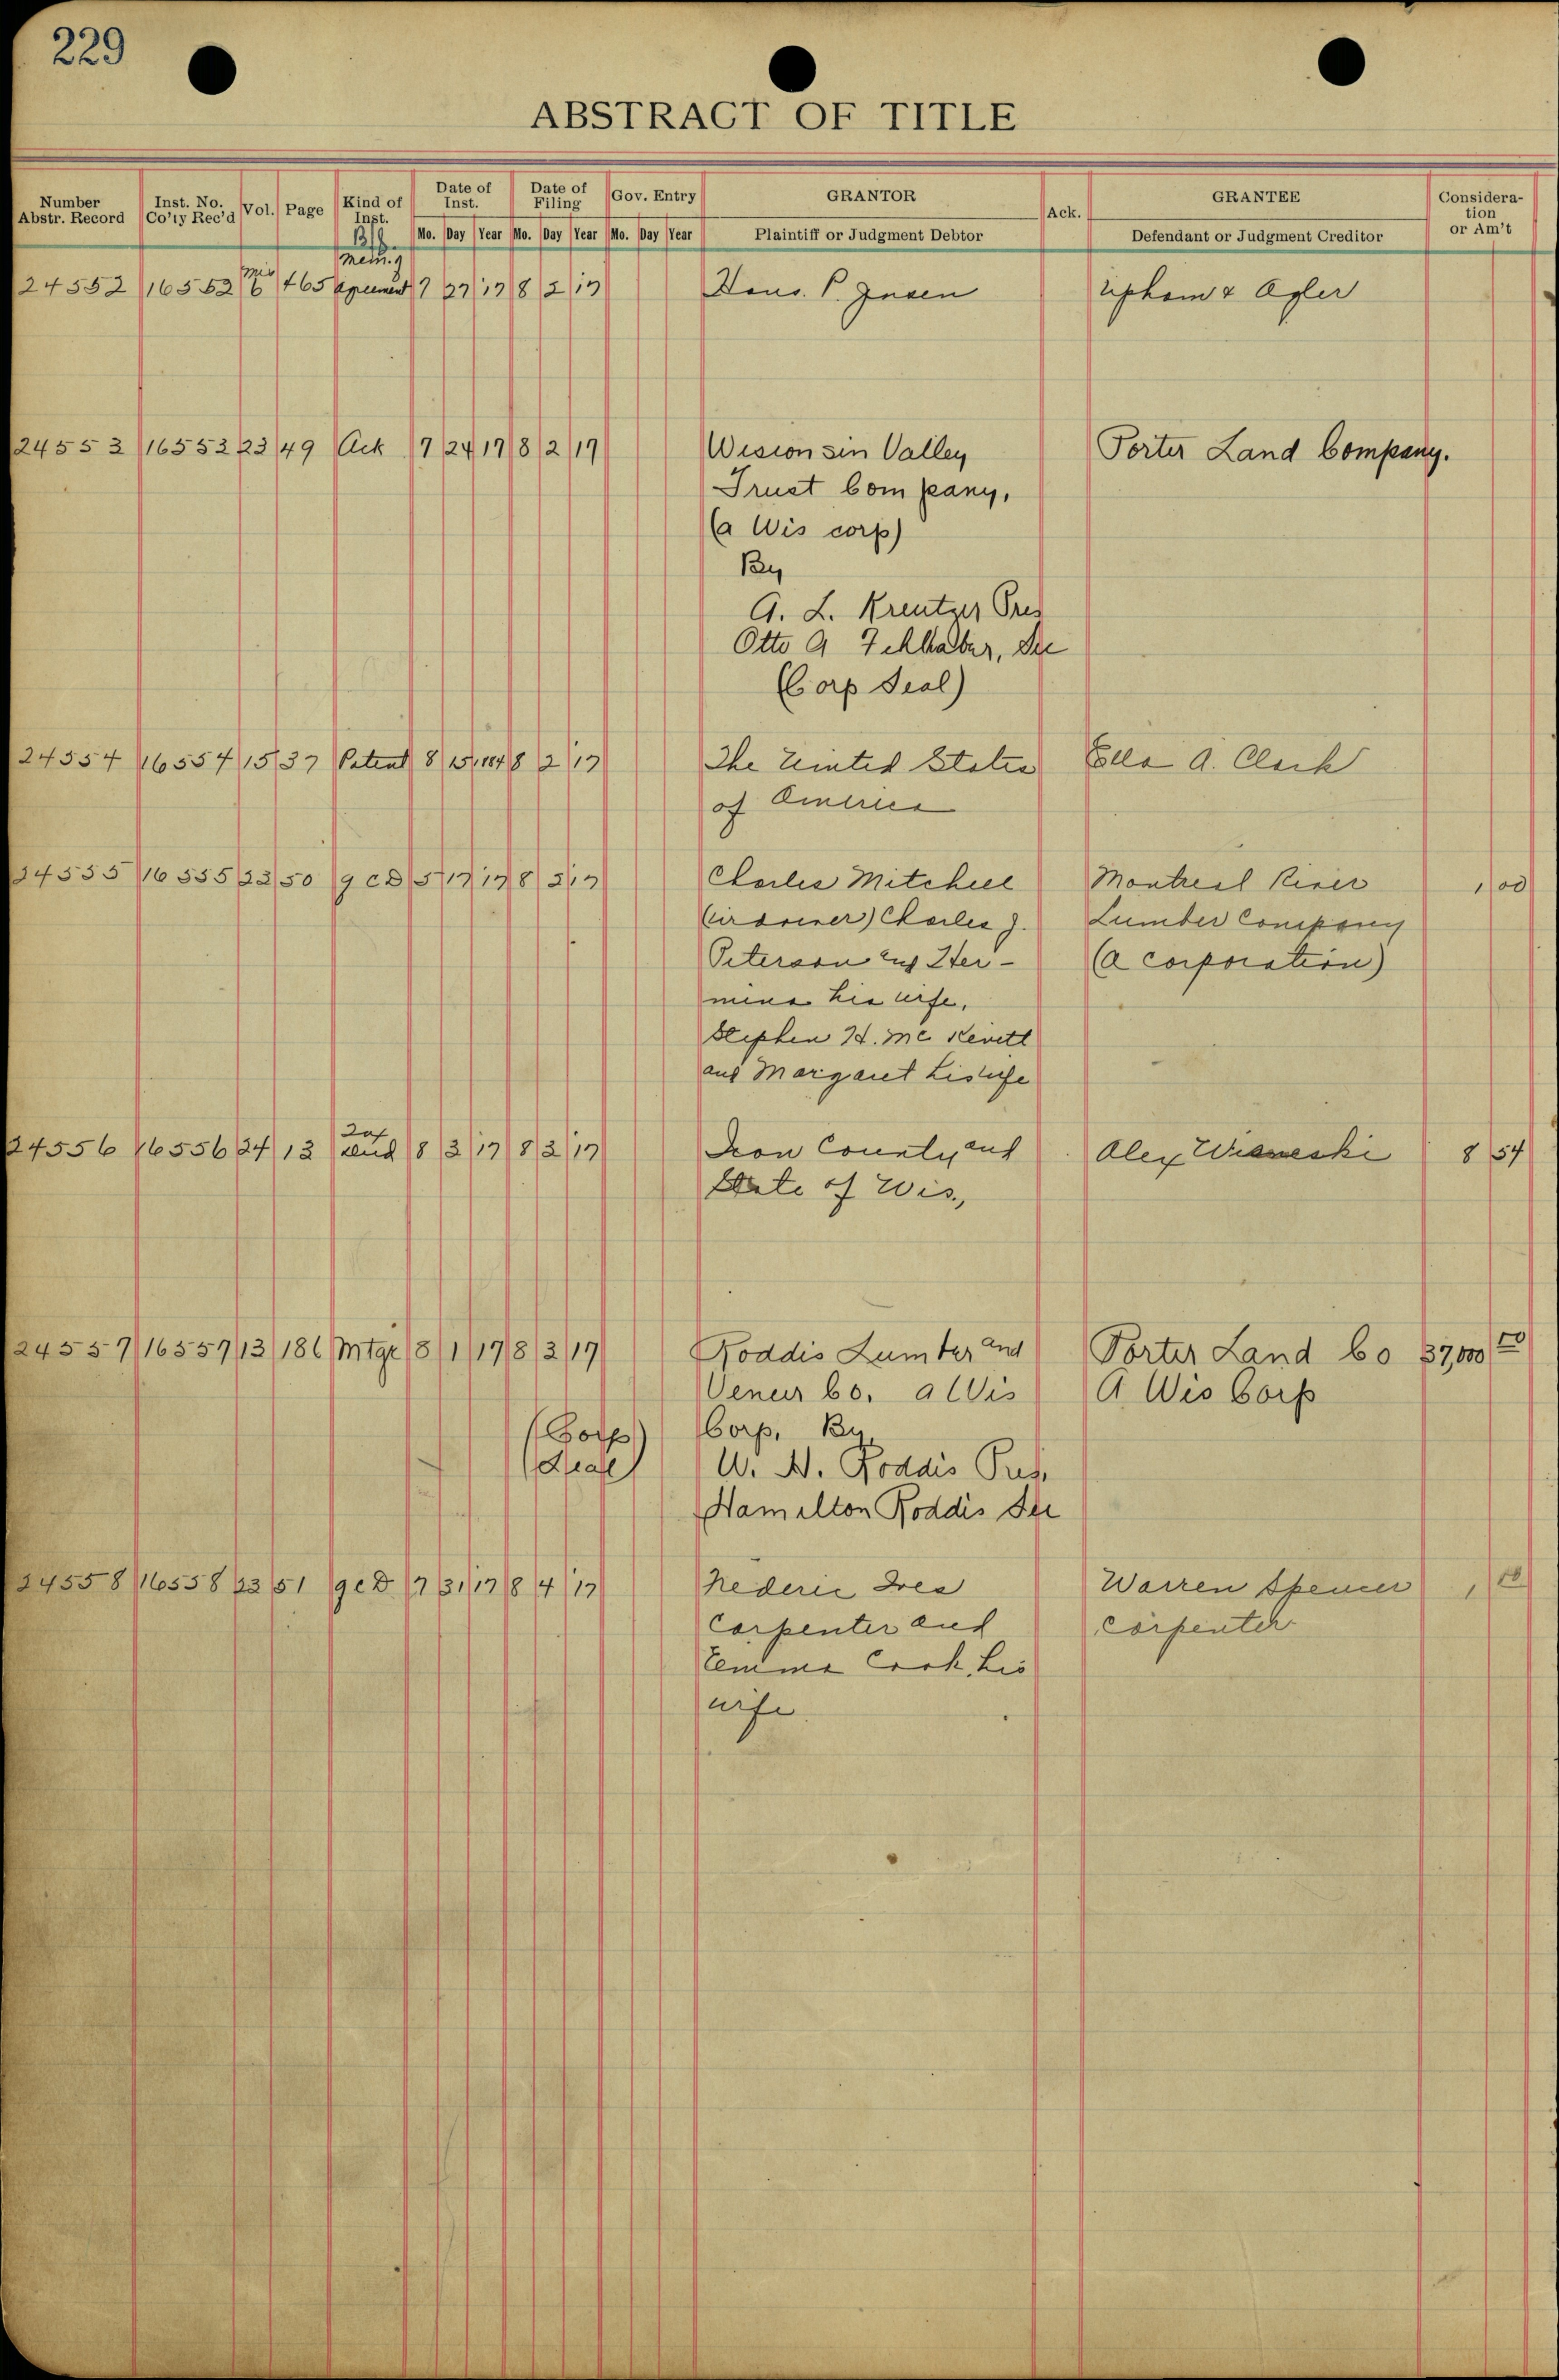 229
ABSTRACT OF TITLE
Number Abstr. Record Inst. No. Co'ty Rec'd Vol. Page Kind of Inst. Date of Inst. Date of Filing Gov. Entry GRANTOR Ack. GRANTEE Consideration or Am't
Mo. Day Year Mo. Day Year Mo. Day Year Plaintiff or Judgment Debtor Defendant or Judgment Creditor
Mem. of
24552 16552 Mis 6 465 Agreement 7 27 17 8 2 17 Hans. P. Jensen Upham & Agler
24553 16553 23 49 Ack 7 24 17 8 2 17 Wisionsin Valley Porter Land Company.
Trust Company,
(a Wis corp)
By
A. L. Kreutzer Pres
Otto A Fehlhaber, Sec
(Corp Seal)
24554 16554 15 37 Patent 8 15 1884 8 2 17 The United States Ella A. Clark
of America
24555 16555 23 50 QCD 5 17 17 8 2 17 Charles Mitchell Montreal River 1 00
Charles J. Lumber Company
Peterson and Her- (a corporation)
mina his wife,
Stephen H. Mc Kevitt
and Margaret his wife
24556 16556 24 13 Tax Deed 8 3 17 8 3 17 Iron County and Alex Wisneski 8 54
State of Wis.,
24557 16557 13 186 Mtge 8 1 17 8 3 17 Roddis Lumber and Porter Land Co 37,000 00
Veneer Co. a Wis A Wis Corp
(Corp) Corp, By,
(Seal) W. H. Roddis Pres.
Hamilton Roddis Sec
24558 16558 23 51 QCD 7 31 17 8 4 17 Ives Warren Spencer 1, 00
Carpenter and Carpenter
Emma Cook, his
wife.